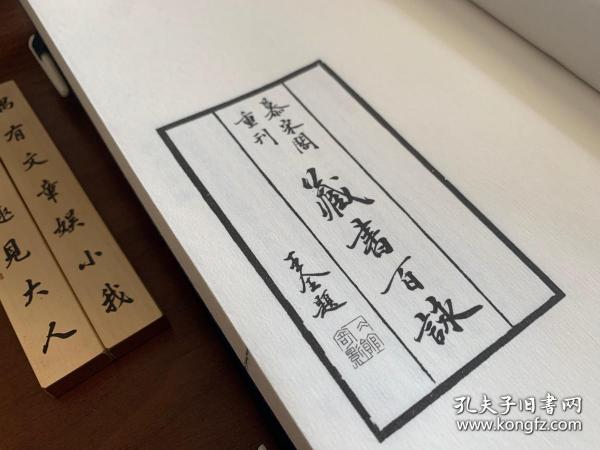 慕宋閣
重刊
藏書百詠
王全題
偶有文章娛小我
見大人
孔夫子旧书网
www.kongfz.com